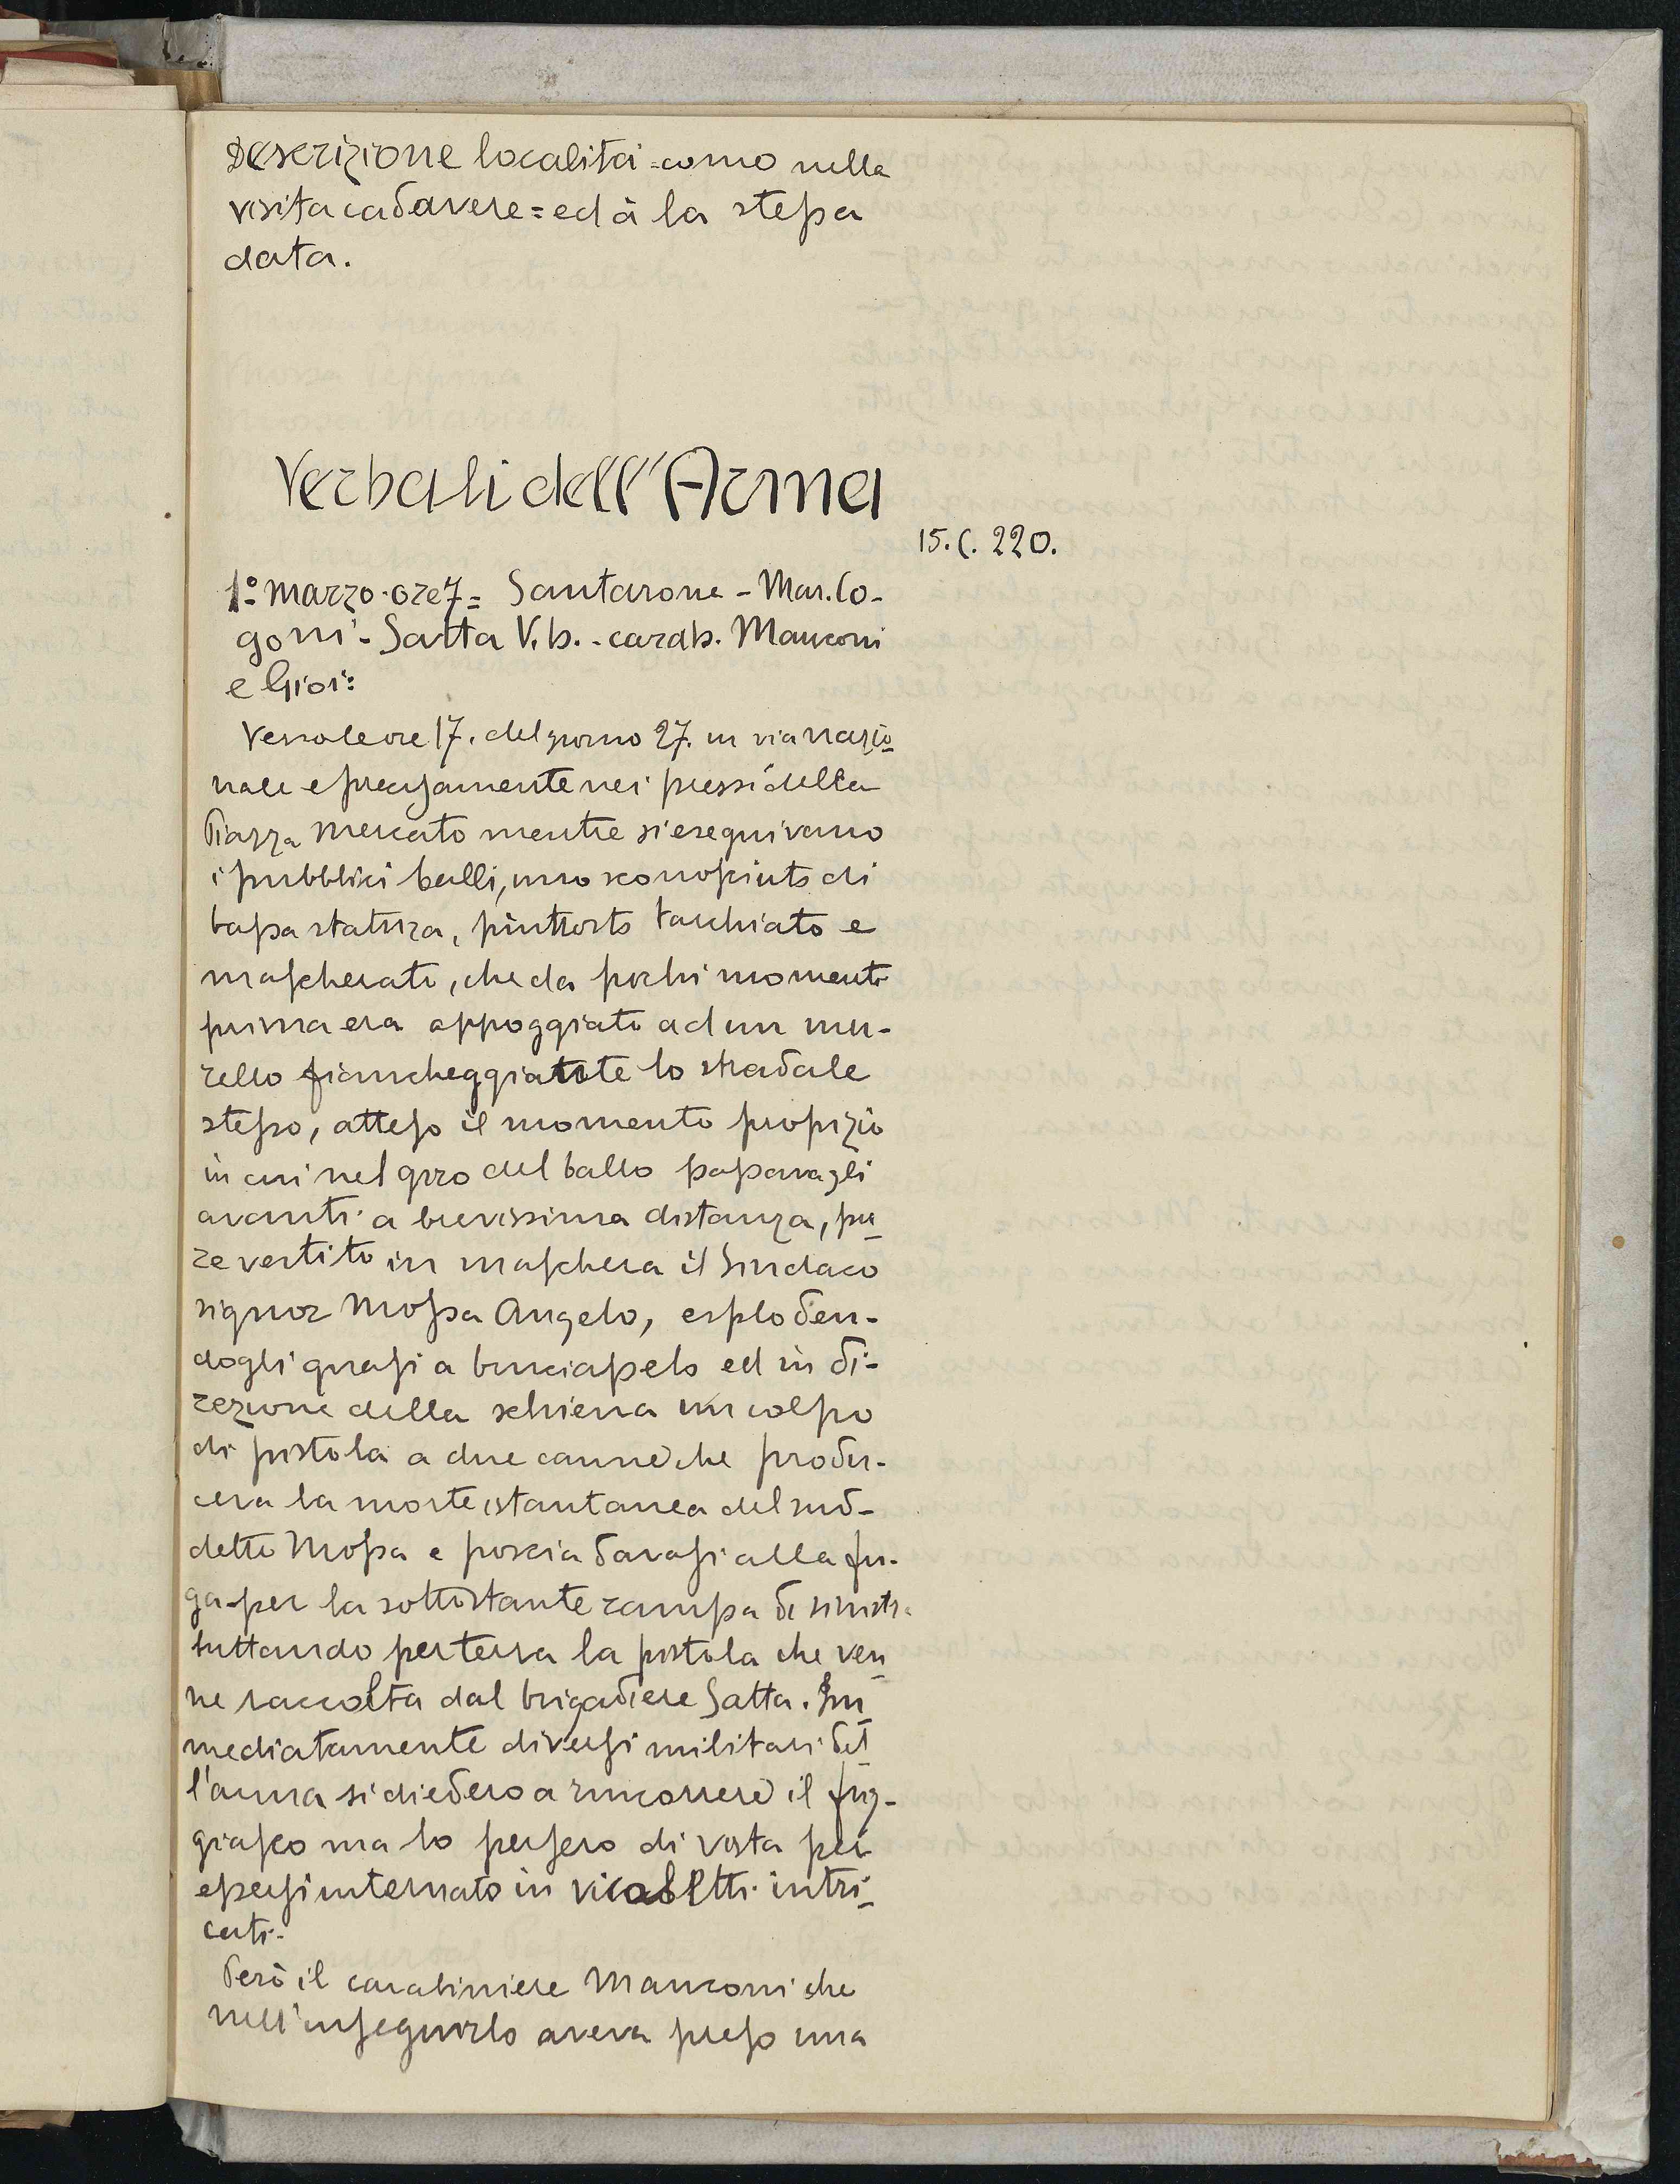 Descrizione località = como nella
visita cadavere = ed à la stessa
data.
Verbali dell'Arma
15. C. 220.
1º marzo. ore 7 = Santarone - Mar. Co-
goni - Satta V. b. - carab. Manconi
e Gioi:
Verso le ore 17. del giorno 27. in via nazio-
nale e precisamente nei pressi della
Piazza Mercato mentre si eseguivano
i pubblici balli, uno sconosciuto di
bassa statura, piuttosto tarchiato e
mascherato, che da pochi momenti
prima era appoggiato ad un mu-
rello fiancheggiatnte lo stradale
stesso, atteso il momento propizio
in cui nel giro del ballo passavagli
avanti a brevissima distanza, pu-
re vestito in maschera il Sindaco
signor Mossa Angelo, esploden-
dogli quasi a bruciapelo ed in di-
rezione della schiena un colpo
di pistola a due canne che produ-
ceva la morte istantanea del sud-
detto Mossa e poscia davasi alla fu-
ga per la sottostante rampa di sinistra
buttando per terra la pistola che ven-
ne raccolta dal brigadiere Satta. Im-
mediatamente diversi militari del-
l'arma si diedero a rincorrere il fug-
giasco ma lo persero di vista per
essersi internato in vicoletti intri-
cati.
Però il carabiniere Manconi che
nell'inseguirlo aveva preso una